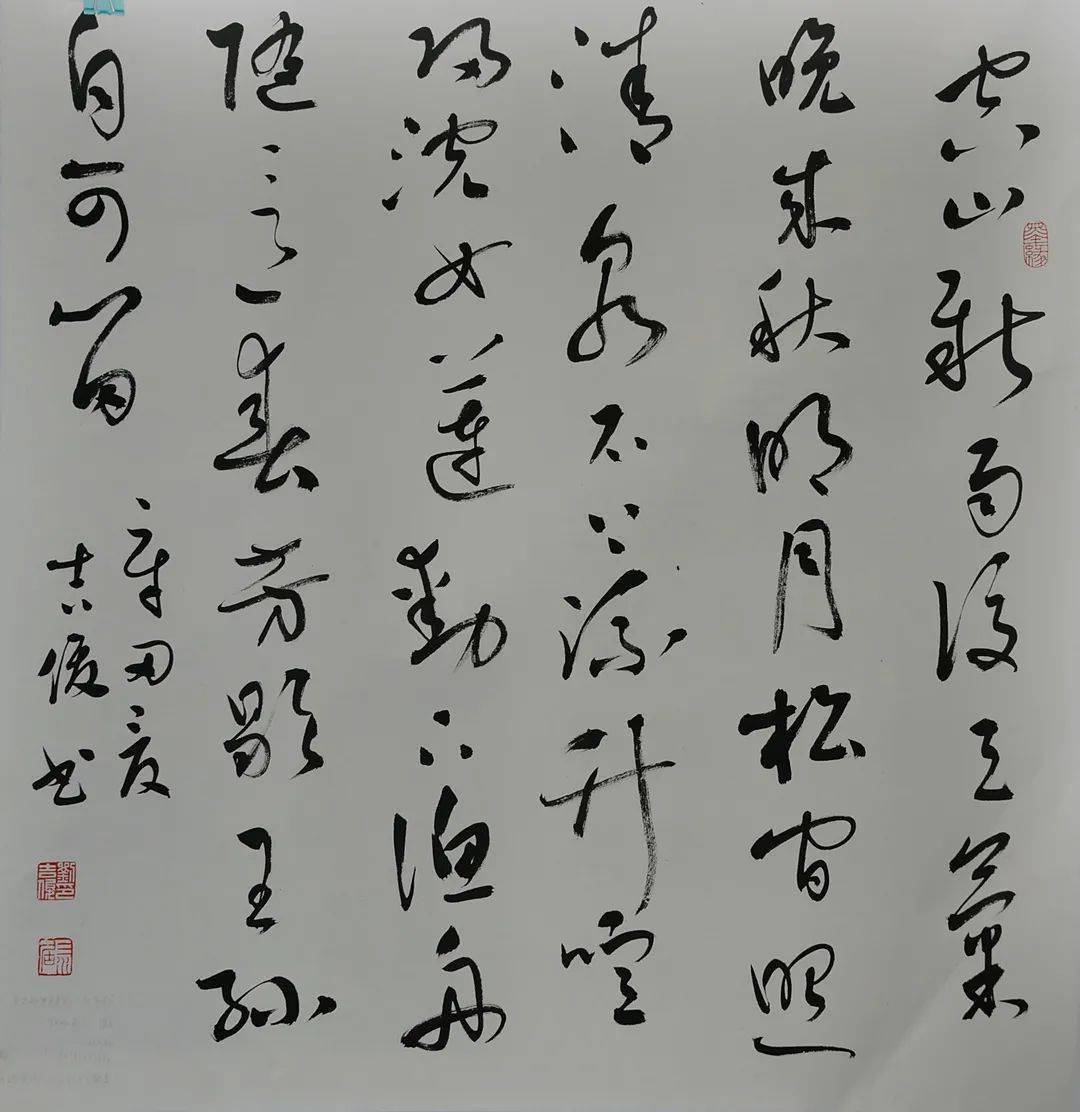 空山新雨後天氣
晚來秋明月松間照
清泉石上流竹喧
歸浣女蓮動下漁舟
隨意春芳歇王孫
自可留
辛丑夏
吉俊书